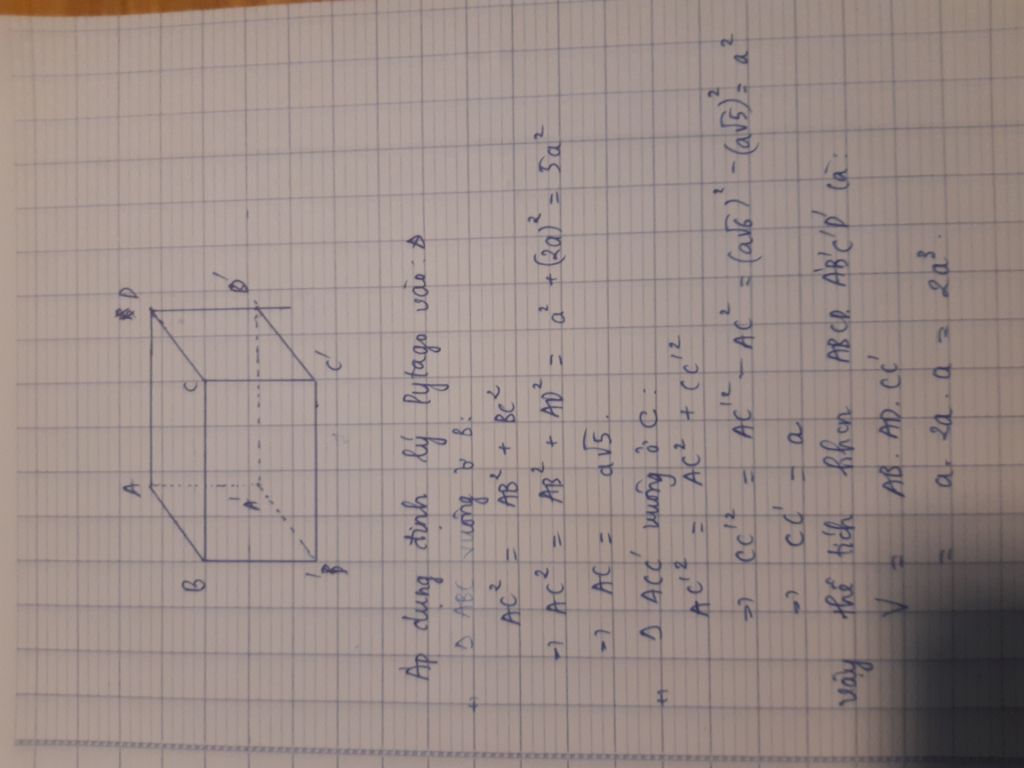 A
D
B
C
A'
D'
B'
C'
Áp dụng định lý Pytago vào:
+ Δ ABC vuông ở B:
AC² = AB² + BC²
=> AC² = AB² + AD² = a² + (2a)² = 5a²
=> AC = a√5.
+ Δ ACC' vuông ở C:
AC'² = AC² + CC'²
=> CC'² = AC'² - AC² = (a√6)² - (a√5)² = a²
=> CC' = a
Vậy thể tích hhcn ABCD A'B'C'D' là:
V = AB. AD. CC'
= a. 2a. a = 2a³.